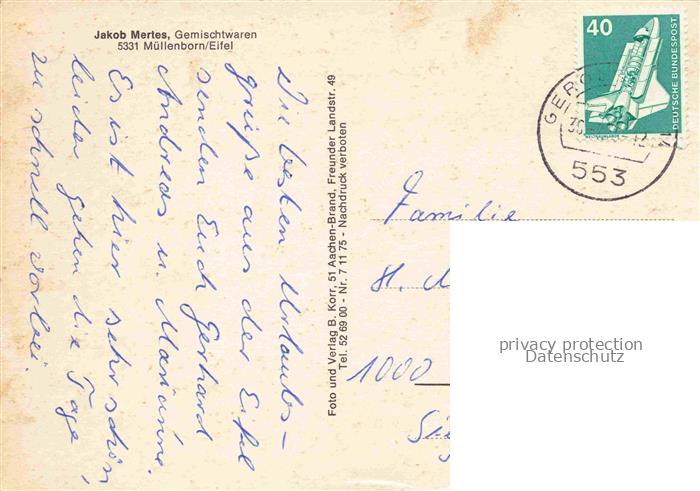 Jakob Mertes, Gemischtwaren
5331 Müllenborn/Eifel
Die besten Urlaubs-
grüße aus der Eifel
senden Euch Gerhard
Andreas u. Marianne.
Es ist hier sehr schön,
leider gehen die Tage
zu schnell vorbei.
Foto und Verlag B. Korr, 51 Aachen-Brand, Freunder Landstr. 49
Tel. 52 69 00 - Nr. 7 11 75 - Nachdruck verboten
40
DEUTSCHE BUNDESPOST
553
Familie
H. M
1000
privacy protection
Datenschutz